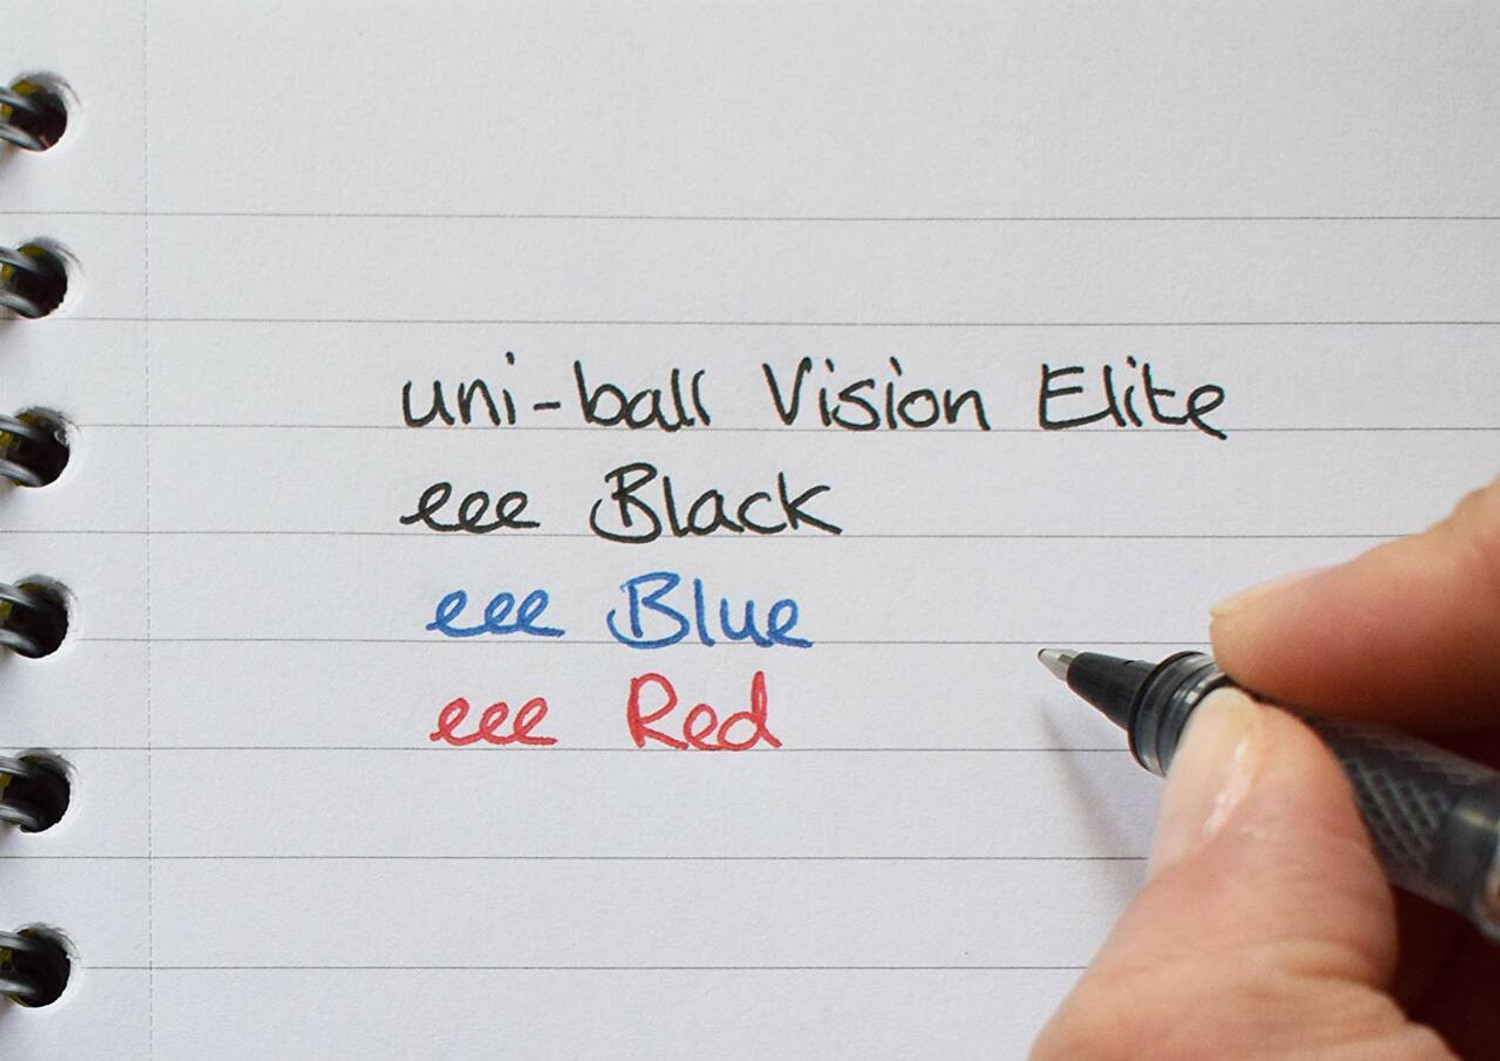 uni-ball Vision Elite
eee Black
eee Blue
eee Red